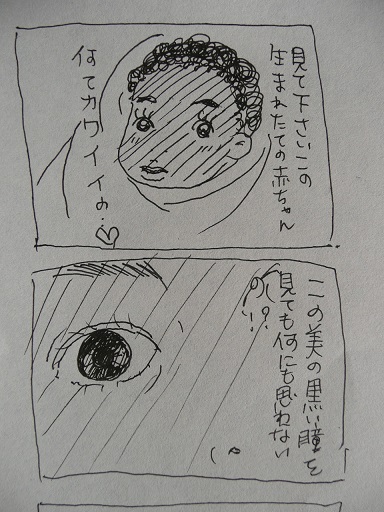 見て下さいこの
生まれたての赤ちゃん
何てカワイイの…♡
この美の黒い瞳を
見ても何にも思わない
の!?!!